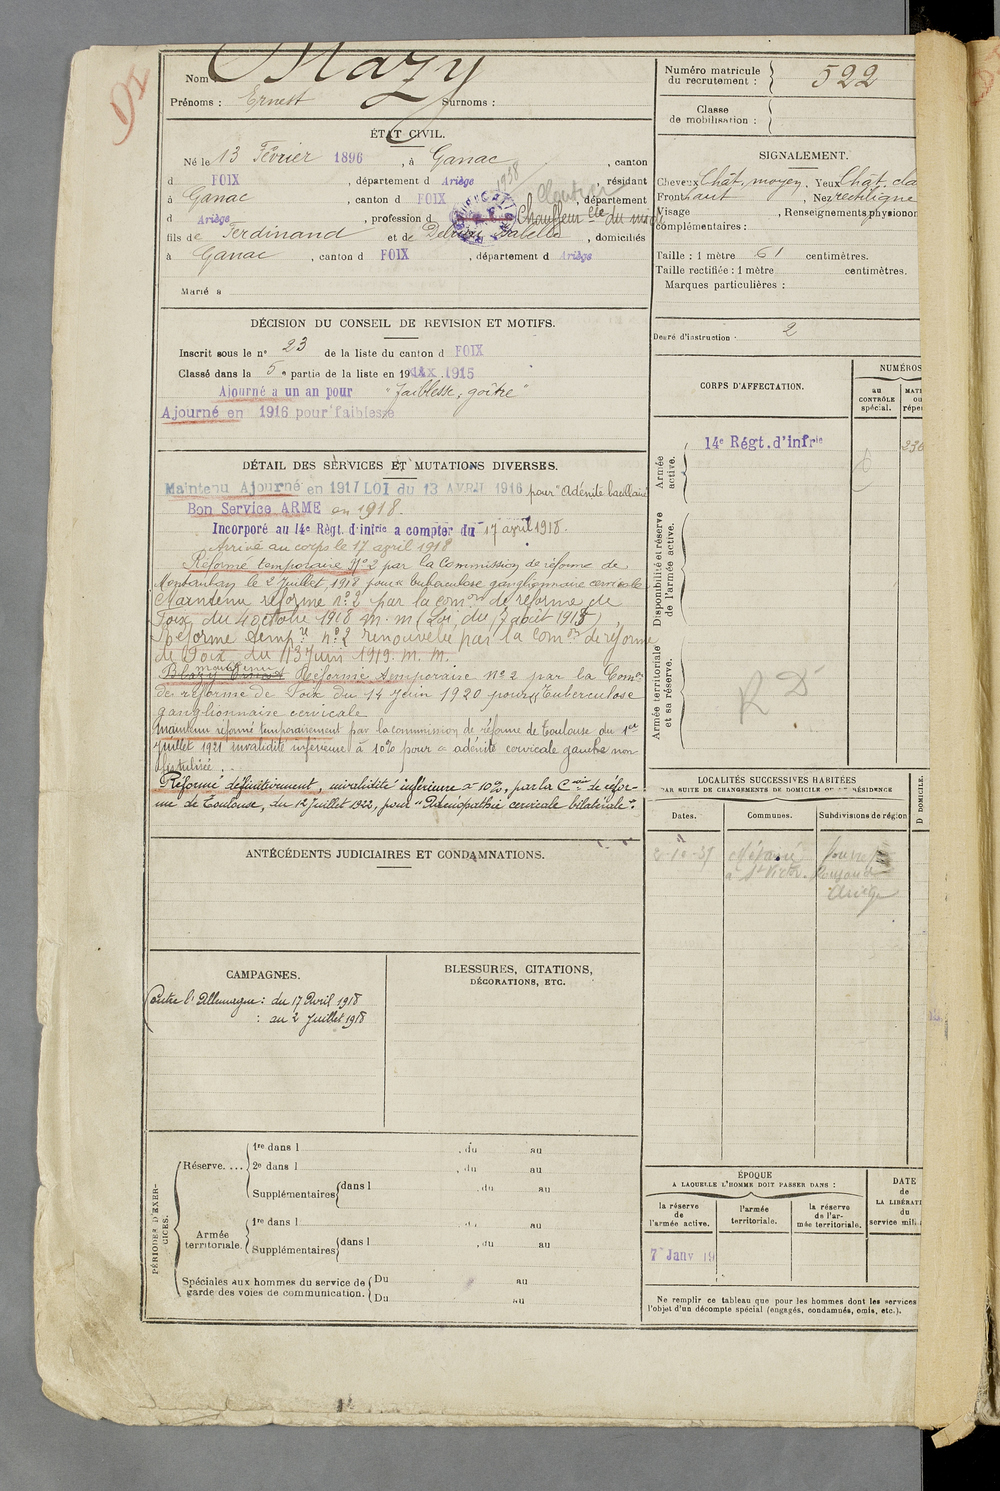 Nom : Blazy
Prénoms : Ernest Surnoms :
Numéro matricule
du recrutement : 522
Classe
de mobilisation :
ÉTAT CIVIL.
Né le 13 Février 1896, à Ganac, canton
d FOIX, département d Ariège, résidant
à Ganac, canton d FOIX, département
d Ariège, profession d Chauffeur
fils de Ferdinand et de Isabelle, domiciliés
à Ganac, canton d FOIX, département d Ariège
Marié à
SIGNALEMENT.
Cheveux Chât. moyen. Yeux Chat. cla
Front haut, Nez rectiligne
Visage , Renseignements physionom
complémentaires :
Taille : 1 mètre 61 centimètres.
Taille rectifiée : 1 mètre centimètres.
Marques particulières :
Degré d'instruction : 2
DÉCISION DU CONSEIL DE REVISION ET MOTIFS.
Inscrit sous le n° 23 de la liste du canton d FOIX
Classé dans la 5e partie de la liste en 1915
Ajourné à un an pour "faiblesse, goître"
Ajourné en 1916 pour faiblesse
DÉTAIL DES SERVICES ET MUTATIONS DIVERSES.
Maintenu Ajourné en 1917 LOI du 13 AVRIL 1916 pour "Adénite bacillaire
Bon Service ARMÉ en 1918.
Incorporé au 14e Régt. d'infrie a compter du 17 avril 1918.
Arrivé au corps le 17 avril 1918
Réformé temporaire N°2 par la Commission de réforme de
Montauban le 2 Juillet 1918 pour tuberculose ganglionnaire cervicale
Maintenu réformé n°2 par la comon de réforme de
Foix du 4 octobre 1918 m. m (Loi du 17 août 1915)
Réforme tempre n°2 renouvelée par la comon de réforme
de Foix du 13 Juin 1919. m. m.
Blazy Ernest maintenu Réforme temporaire N°2 par la Comon
de réforme de Foix du 14 Juin 1920 pour "Tuberculose
ganglionnaire cervicale
Maintenu réformé temporairement par la commission de réforme de Toulouse du 1er
Juillet 1921 invalidité inférieure à 10% pour "adénite cervicale gauche non
fistulisée.
Réformé définitivement, invalidité inférieure à 10%, par la Con de réfor-
me de Toulouse, du 12 Juillet 1922, pour "Adénopathie cervicale bilatérale".
CORPS D'AFFECTATION.
NUMÉROS
au
CONTRÔLE
spécial.
MATR
ou
réper
Armée
active.
14e Régt. d'infrie
236
Disponibilité et réserve
de l'armée active.
Armée territoriale
et sa réserve.
R D
LOCALITÉS SUCCESSIVES HABITÉES
PAR SUITE DE CHANGEMENTS DE DOMICILE OU DE RÉSIDENCE
Dates.
Communes.
Subdivisions de région
D DOMICILE.
Ariège
ANTÉCÉDENTS JUDICIAIRES ET CONDAMNATIONS.
CAMPAGNES.
Contre l'Allemagne : du 17 Avril 1918
: au 2 Juillet 1918
BLESSURES, CITATIONS,
DÉCORATIONS, ETC.
PÉRIODES D'EXER-
CICES.
Réserve....
1re dans l , du au
2e dans l , du au
Supplémentaires dans l , du au
Armée
territoriale.
1re dans l , du au
Supplémentaires dans l , du au
Spéciales aux hommes du service de
garde des voies de communication.
Du au
Du au
ÉPOQUE
A LAQUELLE L'HOMME DOIT PASSER DANS :
la réserve
de
l'armée active.
l'armée
territoriale.
la réserve
de l'ar-
mée territoriale.
DATE
de
LA LIBÉRATI
du
service mili
7 Janv 19
Ne remplir ce tableau que pour les hommes dont les services
l'objet d'un décompte spécial (engagés, condamnés, omis, etc.).